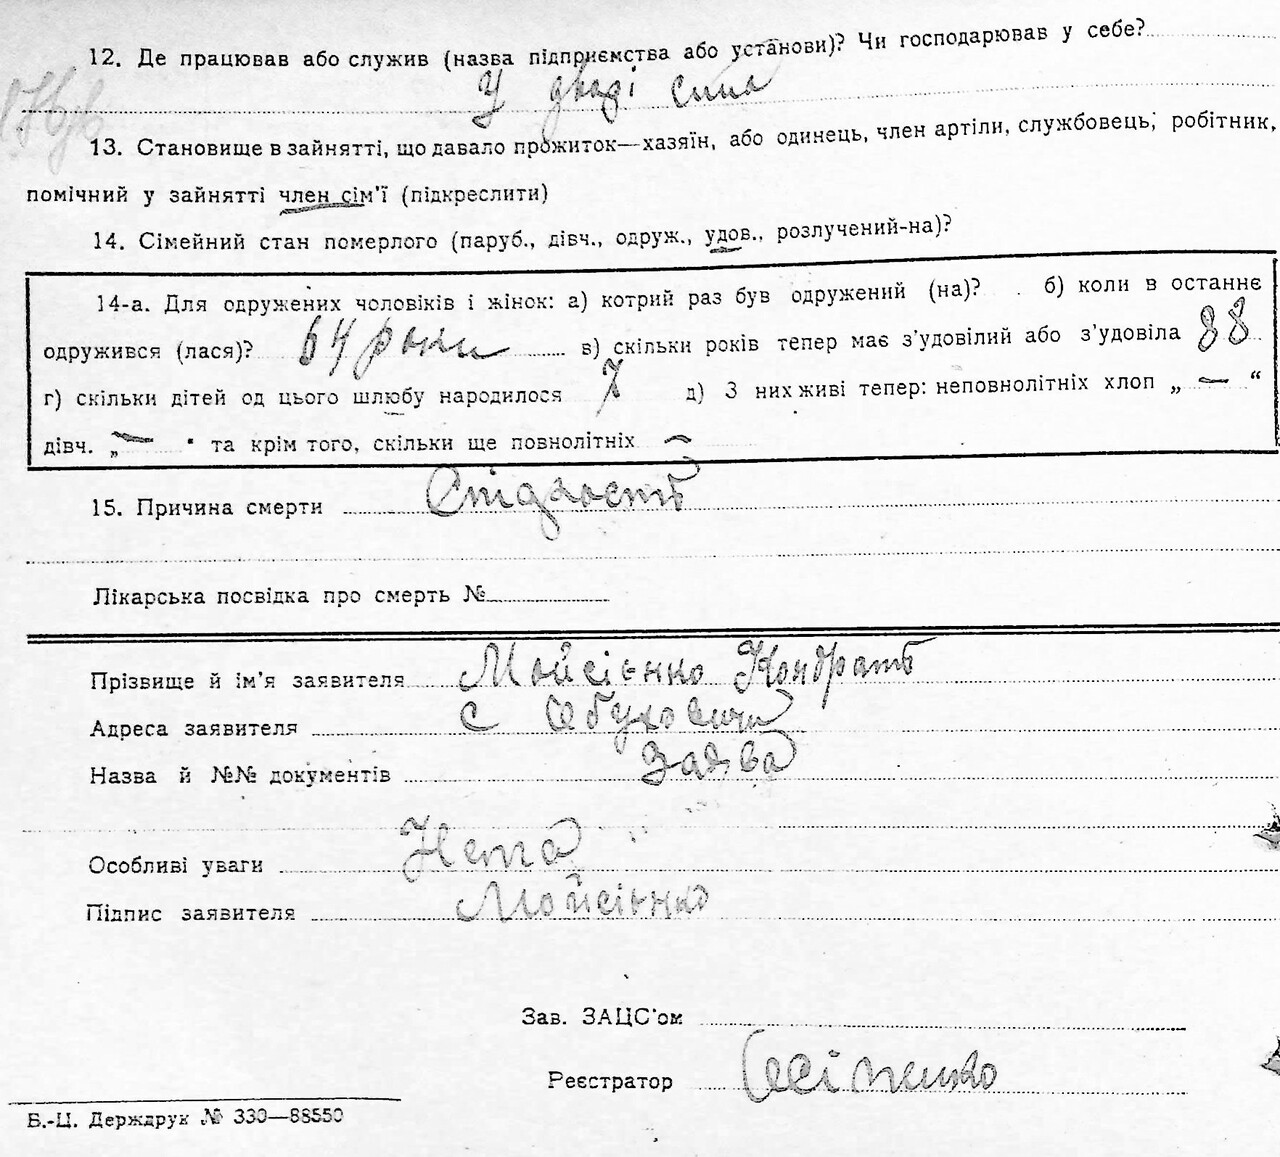 12. Де працював або служив (назва підприємства або установи)? Чи господарював у себе?
У дворі сина
13. Становище в зайнятті, що давало прожиток—хазяїн, або одинець, член артіли, службовець, робітник,
помічний у зайнятті член сім'ї (підкреслити)
14. Сімейний стан померлого (паруб., дівч., одруж., удов., розлучений-на)?
14-а. Для одружених чоловіків і жінок: а) котрий раз був одружений (на)? б) коли в останнє
одружився (лася)? 64 роки в) скільки років тепер має з'удовілий або з'удовіла 88
г) скільки дітей од цього шлюбу народилося 7 д) З них живі тепер: неповнолітніх хлоп „ — “
дівч. „ — та крім того, скільки ще повнолітніх —
15. Причина смерти
Лікарська посвідка про смерть №
Прізвище й ім'я заявителя Мойсієнко Кондрать
Адреса заявителя с Обуховичи
Назва й №№ документів Заява
Особливі уваги Нета
Підпис заявителя Мойсієнко
Зав. ЗАЦС'ом
Реєстратор
Б.-Ц. Держдрук № 330—88550